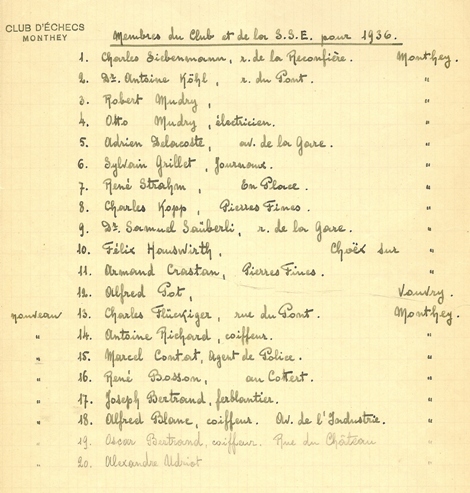 CLUB D'ÉCHECS
MONTHEY
Membres du Club et de la S.S.E. pour 1936.
1. Charles Siebenmann, r. de la Reconfière. Monthey.
2. Dr. Antoine Köhl, r. du Pont. "
3. Robert Mudry, "
4. Otto Mudry, électricien. "
5. Adrien Delacoste, av. de la Gare. "
6. Sylvain Grillet, Journaux. "
7. René Strahm, En Place. "
8. Charles Kopp, Pierres Fines. "
9. Dr. Samuel Säuberli, r. de la Gare. "
10. Félix Hauswirth, Choëx sur "
11. Armand Crastan, Pierres Fines. "
12. Alfred Pot, Vouvry.
nouveau 13. Charles Flückiger, rue du Pont. Monthey.
" 14. Antoine Richard, coiffeur. "
" 15. Marcel Contat, Agent de Police. "
" 16. René Bosson, au Cottert. "
" 17. Joseph Bertrand, ferblantier. "
" 18. Alfred Blanc, coiffeur. Av. de l'Industrie. "
" 19. Oscar Bertrand, coiffeur. Rue du Château "
" 20. Alexandre Udriot "